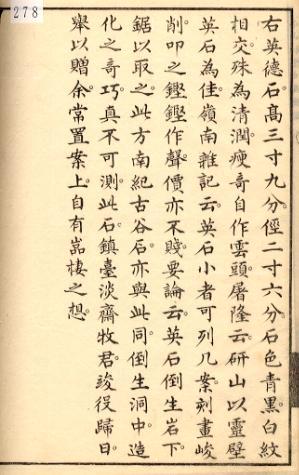 278
右英德石高三寸九分徑二寸六分石色青黑白紋
相交殊為清潤瘦奇自作雲頭屠隆云研山以靈壁
英石為佳嶺南雜記云英石小者可列几案刻畫峻
削叩之鏗鏗作聲價亦不賤要論云英石倒生岩下
鋸以取之此方南紀古谷石亦與此同倒生洞中造
化之奇巧真不可測此石鎮臺淡齋牧君竣役歸日
舉以贈余常置案上自有嵓棲之想